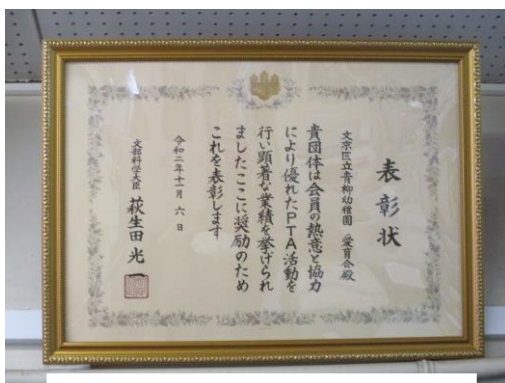 表彰状
文京区立青柳幼稚園 愛育会殿
貴団体は会員の熱意と協力
により優れたPTA活動を
行い顕著な業績を挙げられ
ましたここに奨励のため
これを表彰します
令和二年十一月 六 日
文部科学大臣 萩生田光一